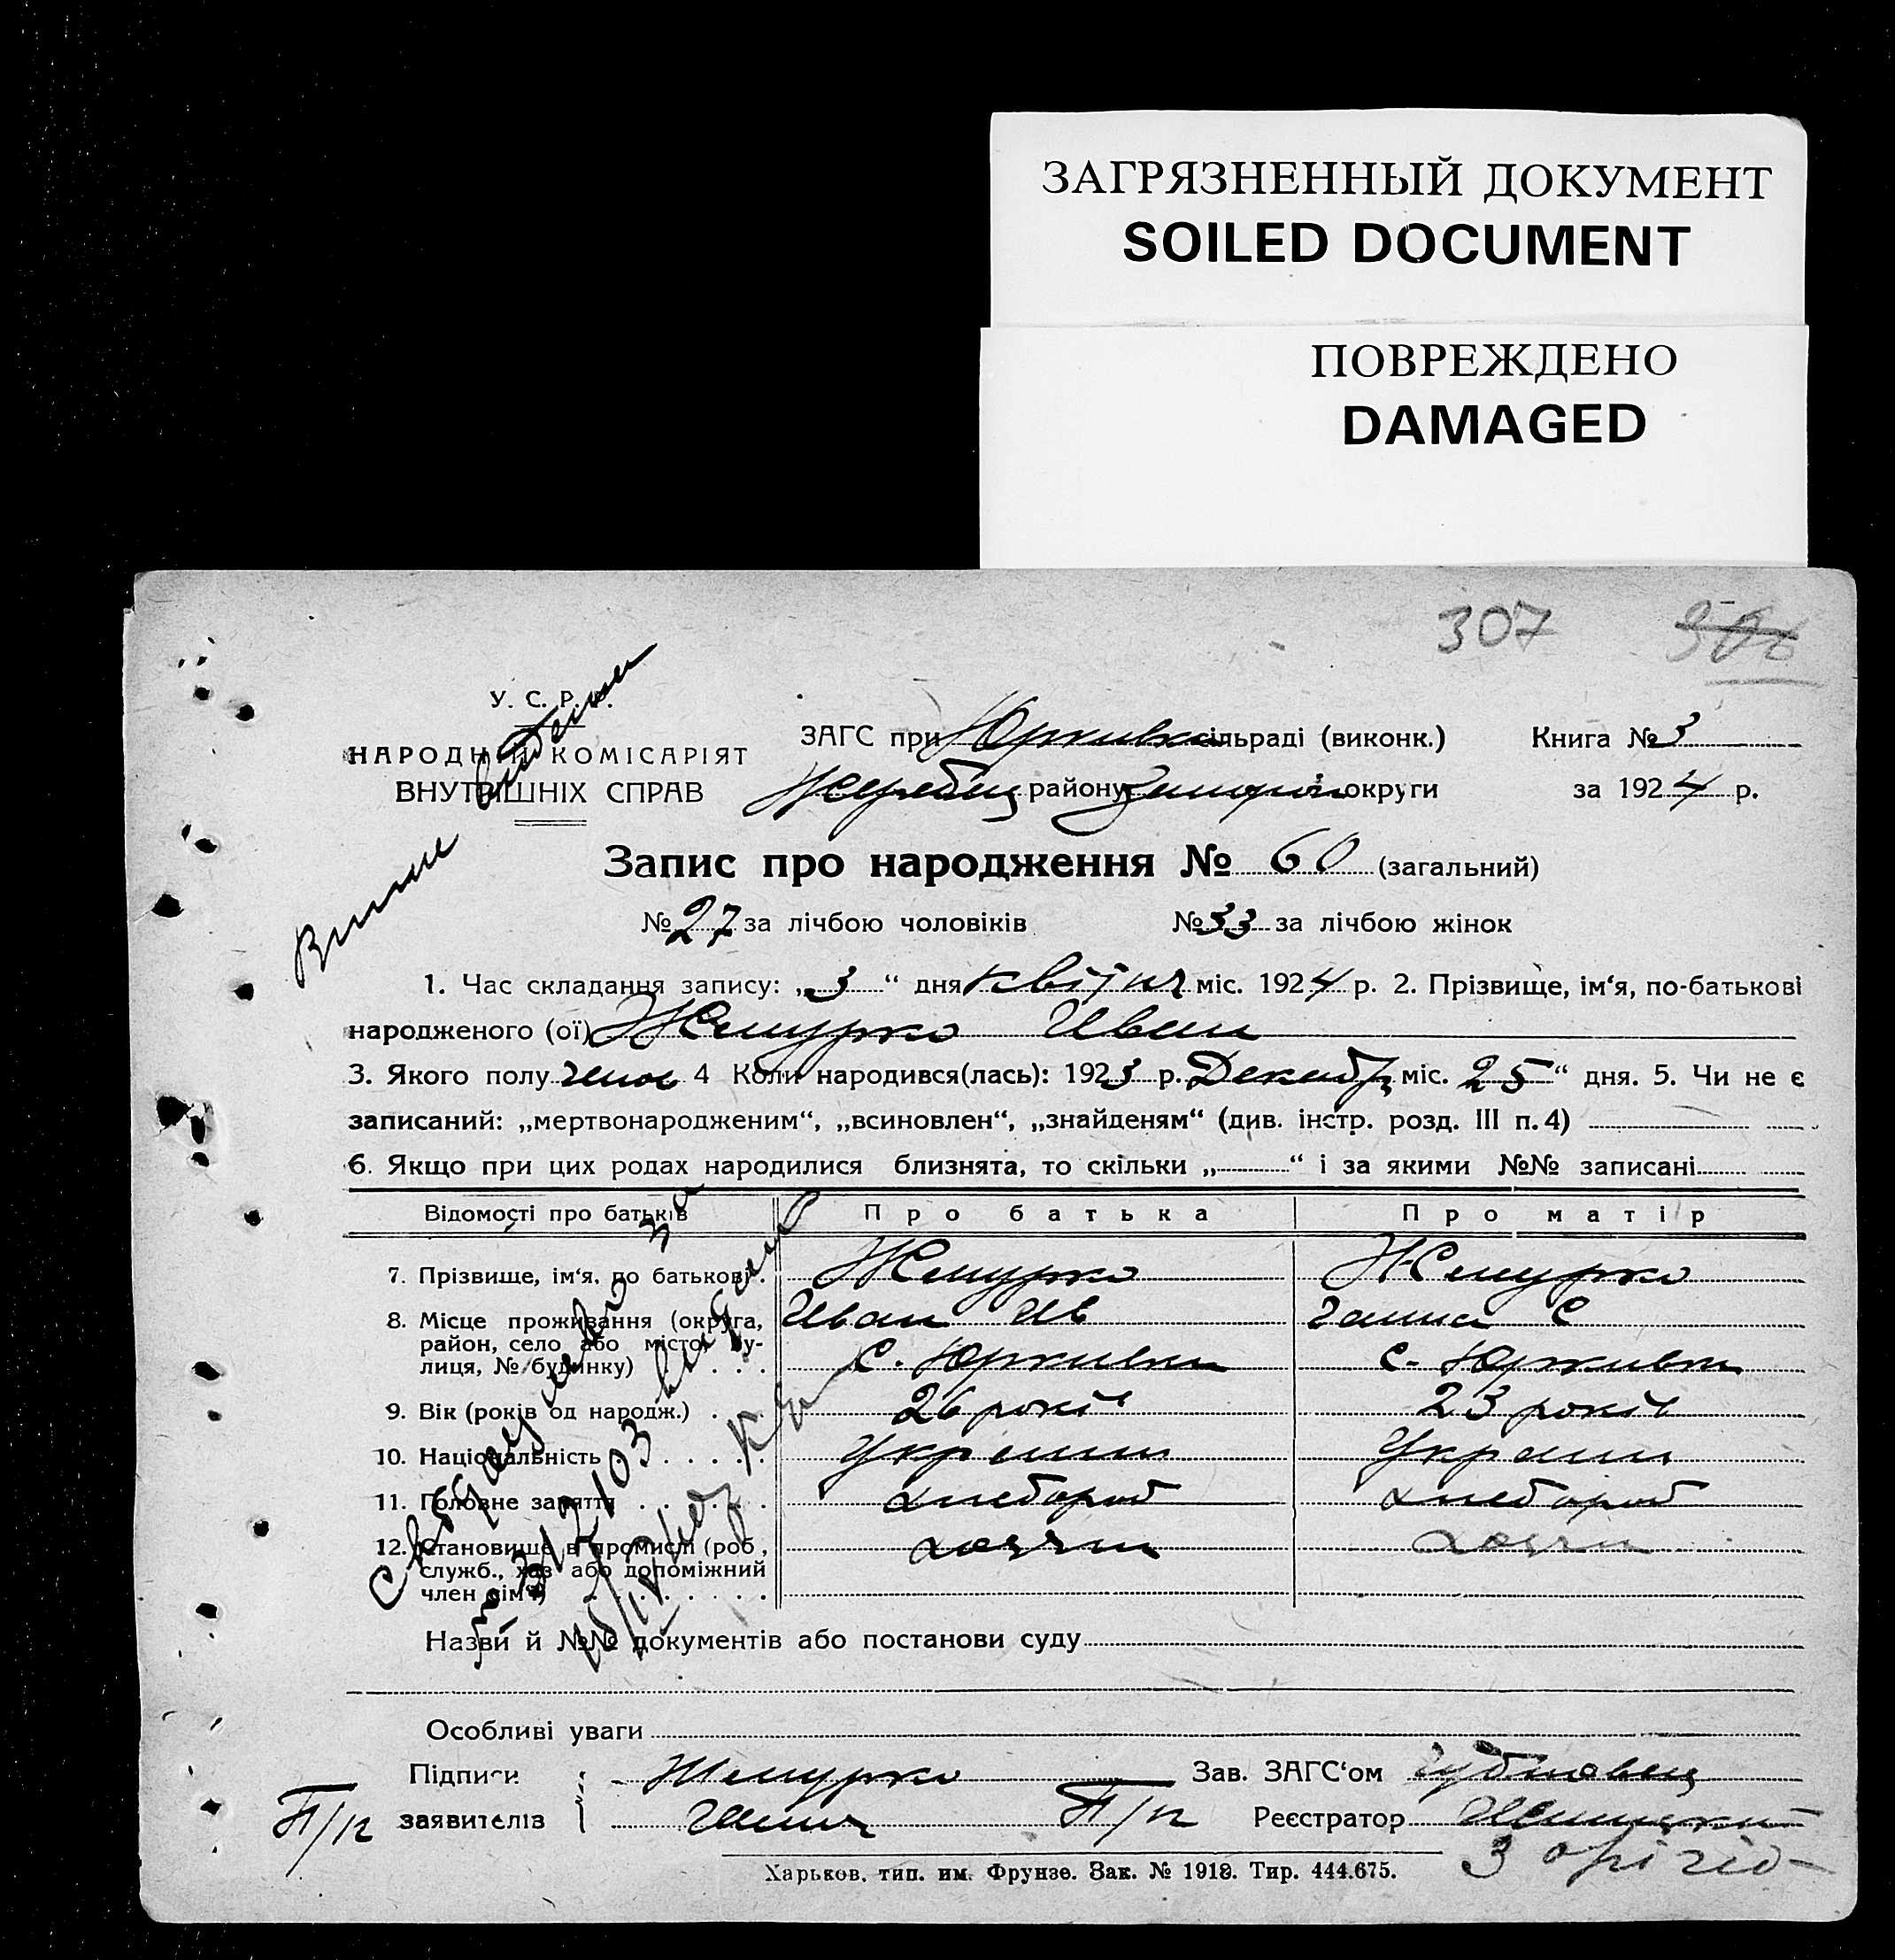 ЗАГРЯЗНЕННЫЙ ДОКУМЕНТ
SOILED DOCUMENT
ПОВРЕЖДЕНО
DAMAGED
307
У. С. Р. Р.
НАРОДНІЙ КОМІСАРІЯТ
ВНУТРІШНІХ СПРАВ
ЗАГС при Юркивка сільраді (виконк.) Книга № 3
Жеребец району округи за 1924 р.
Запис про народження № 60 (загальний)
№ 27 за лічбою чоловіків № 33 за лічбою жінок
1. Час складання запису: „3“ дня квітня міс. 1924 р. 2. Прізвище, ім‘я, по-батькові
народженого (ої) Иван
3. Якого полу 4 Коли народився(лась): 1923 р. Декабр міс. 25“ дня. 5. Чи не є
записаний: „мертвонародженим“, „всиновлен“, „знайденям“ (див. інстр. розд. III п. 4)
6. Якщо при цих родах народилися близнята, то скільки „ “ і за якими №№ записані
Відомості про батьків Про батька Про матір
7. Прізвище, ім‘я, по батькові
8. Місце проживання (округа, Иван Ив Ганна С
район, село або місто, ву-
лиця, № будинку) с. Юркивка с. Юркивка
9. Вік (років од народж.) 26 років 23 років
10. Національність Украин Украин
11. Головне заняття хлебороб хлебороб
12. Становище в промислі (роб., хозяин хозяин
служб., хаз. або допоміжний
член сім‘ї)
Назви й №№ документів або постанови суду
Особливі уваги
Підписи Зав. ЗАГС‘ом
П/п заявителів П/п Реєстратор
З оригіо
Харьков, тип. им. Фрунзе. Зак. № 1918. Тир. 444.675.